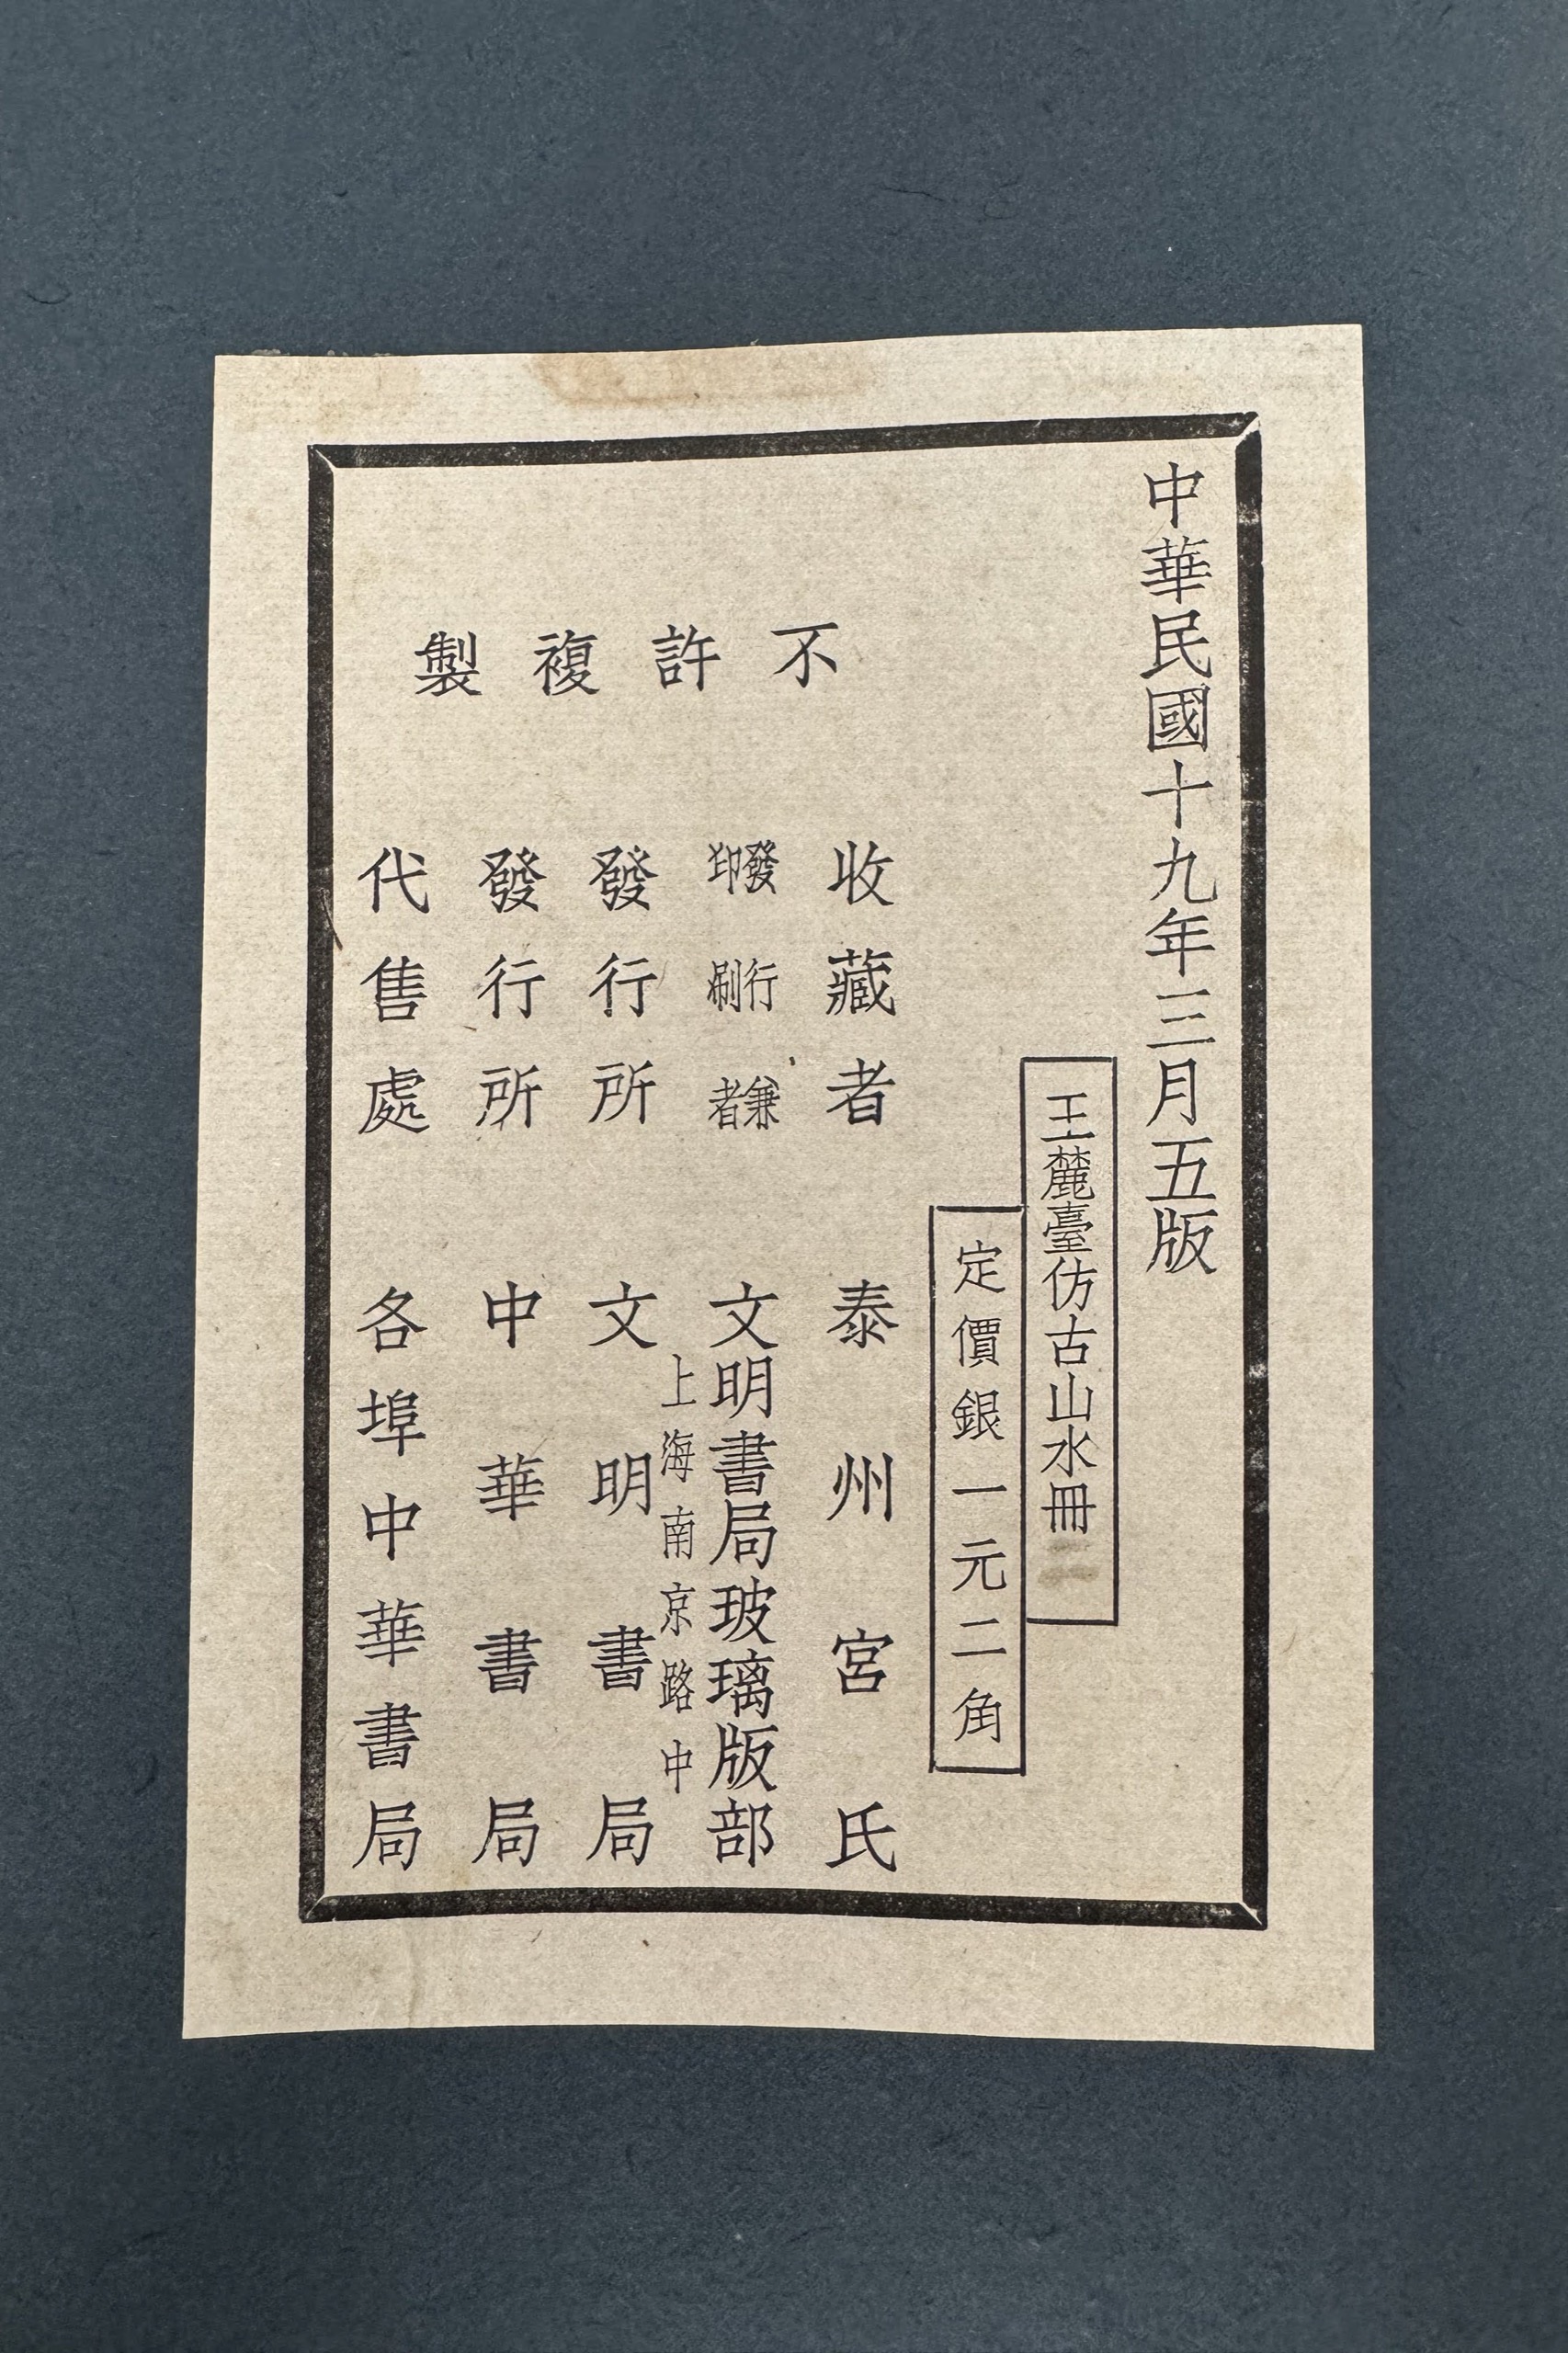 中華民國十九年三月五版
王麓臺仿古山水冊
定價銀一元二角
不許複製
收藏者 泰州宮氏
發行兼印刷者 文明書局玻璃版部
上海南京路中
發行所 文明書局
發行所 中華書局
代售處 各埠中華書局